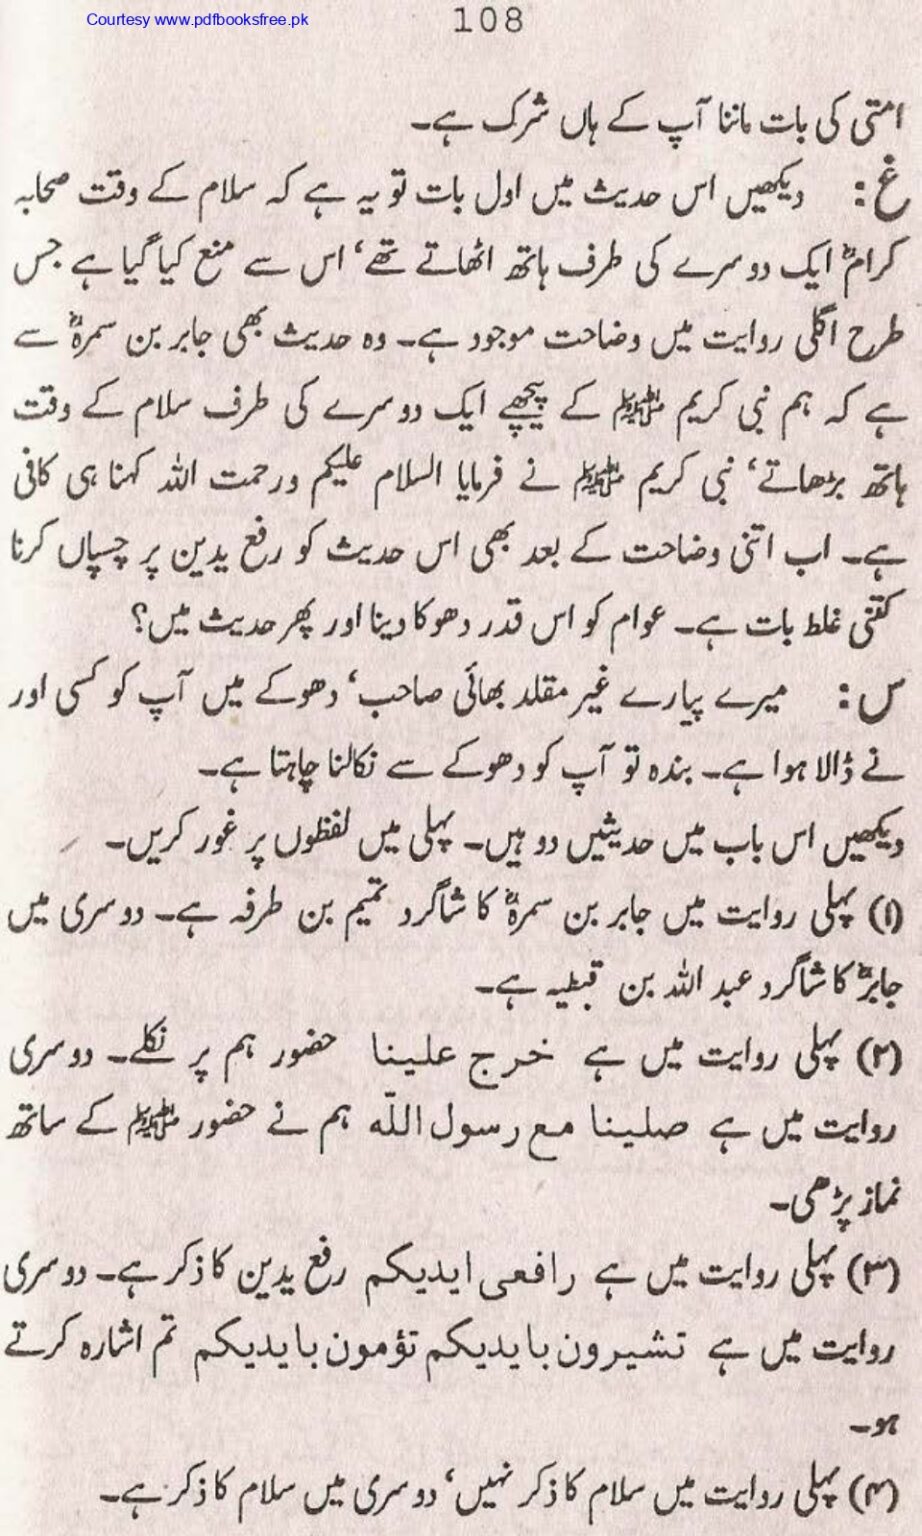 Courtesy www.pdfbooksfree.pk
108
امتی کی بات ماننا آپ کے ہاں شرک ہے۔
غ: دیکھیں اس حدیث میں اول بات تو یہ ہے کہ سلام کے وقت صحابہ
کرامؓ ایک دوسرے کی طرف ہاتھ اٹھاتے تھے‘ اس سے منع کیا گیا ہے جس
طرح اگلی روایت میں وضاحت موجود ہے۔ وہ حدیث بھی جابر بن سمرہؓ سے
ہے کہ ہم نبی کریم ﷺ کے پیچھے ایک دوسرے کی طرف سلام کے وقت
ہاتھ بڑھاتے‘ نبی کریم ﷺ نے فرمایا السلام علیکم ورحمت اللہ کہنا ہی کافی
ہے۔ اب اتنی وضاحت کے بعد بھی اس حدیث کو رفع یدین پر چسپاں کرنا
کتنی غلط بات ہے۔ عوام کو اس قدر دھوکا دینا اور پھر حدیث میں؟
س: میرے پیارے غیر مقلد بھائی صاحب‘ دھوکے میں آپ کو کسی اور
نے ڈالا ہوا ہے۔ بندہ تو آپ کو دھوکے سے نکالنا چاہتا ہے۔
دیکھیں اس باب میں حدیثیں دو ہیں۔ پہلی میں لفظوں پر غور کریں۔
(۱) پہلی روایت میں جابر بن سمرہؓ کا شاگرد تمیم بن طرفہ ہے۔ دوسری میں
جابرؓ کا شاگرد عبد اللہ بن قبطیہ ہے۔
(۲) پہلی روایت میں ہے خرج علینا حضور ہم پر نکلے۔ دوسری
روایت میں ہے صلینا مع رسول اللّٰہ ہم نے حضور ﷺ کے ساتھ
نماز پڑھی۔
(۳) پہلی روایت میں ہے رافعی ایدیکم رفع یدین کا ذکر ہے۔ دوسری
روایت میں ہے تشیرون بایدیکم تؤمون بایدیکم تم اشارہ کرتے
ہو۔
(۴) پہلی روایت میں سلام کا ذکر نہیں‘ دوسری میں سلام کا ذکر ہے۔